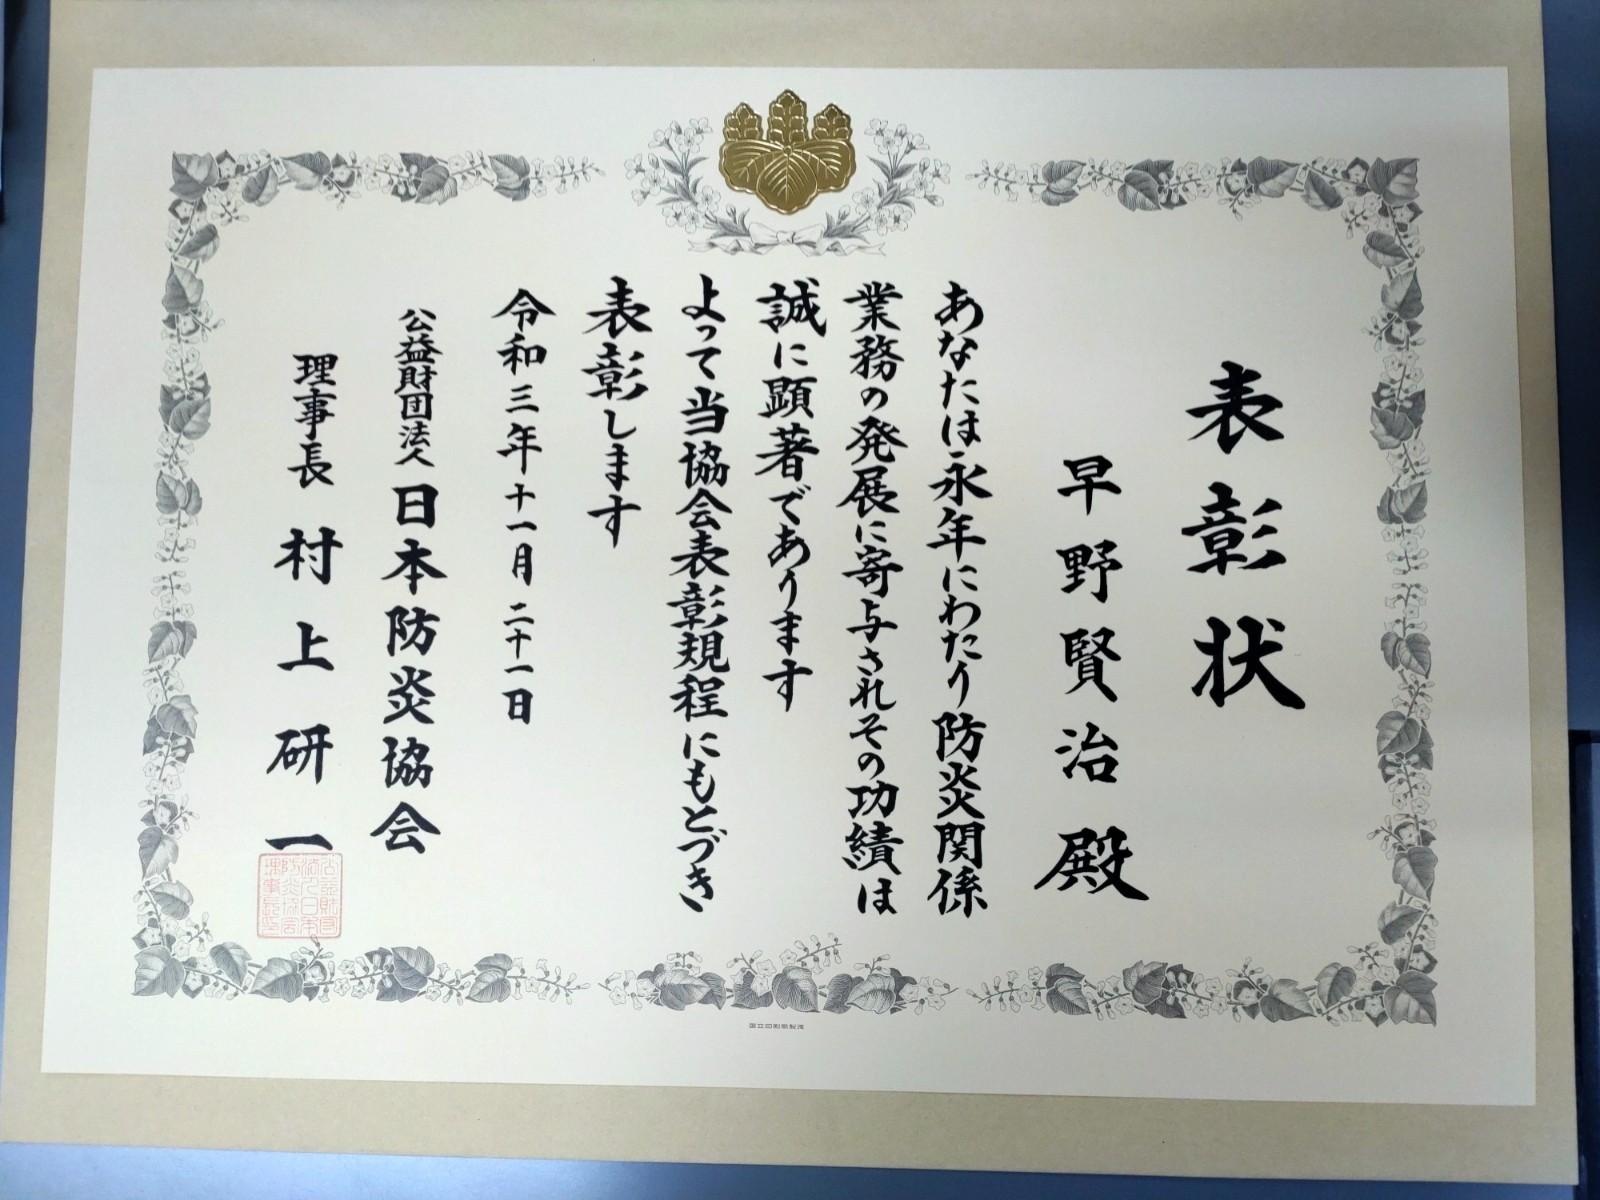 表彰状
早野賢治殿
あなたは永年にわたり防炎関係
業務の発展に寄与されその功績は
誠に顕著であります
よって当協会表彰規程にもとづき
表彰します
令和三年十一月二十一日
公益財団法人日本防炎協会
理事長 村上研一
公益財団
法人日本
防炎協会
理事長印
国立印刷局製造